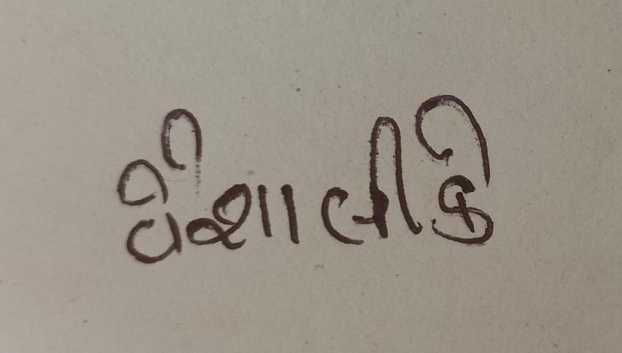 વૈશાલીકે